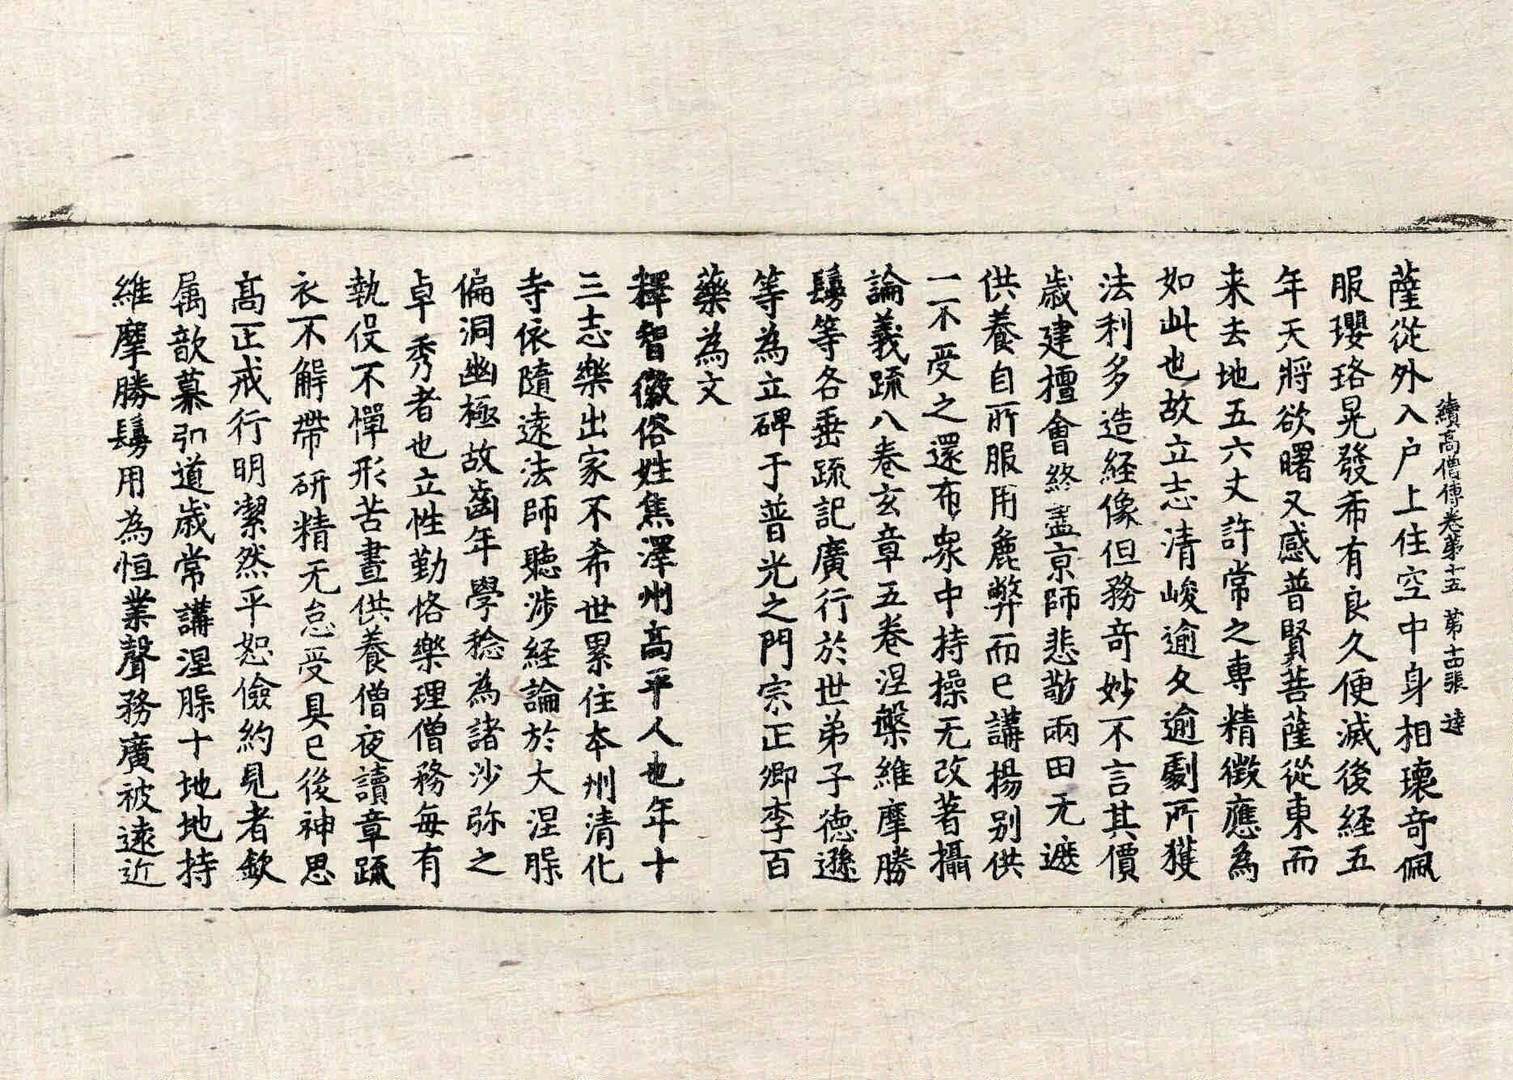 續高僧傳卷第十五 第十四張 達
薩從外入戶上住空中身相瓌奇佩
服瓔珞晃發希有良久便滅後経五
年天將欲曙又感普賢菩薩從東而
来去地五六丈許常之專精徵應為
如此也故立志清峻逾久逾劇所獲
法利多造経像但務奇妙不言其價
歲建檀會終盡京師悲敬兩田无遮
供養自所服用麁弊而已講揚別供
一不受之還布衆中持操无改著攝
論義疏八卷玄章五卷涅槃維摩勝
鬘等各垂疏記廣行於世弟子德遜
等為立碑于普光之門宗正卿李百
藥為文
釋智徽俗姓焦澤州高平人也年十
三志樂出家不希世累住本州清化
寺依隨遠法師聽涉経論於大涅槃
偏洞幽極故齒年學稔為諸沙弥之
卓秀者也立性勤恪樂理僧務每有
執役不憚形苦晝供養僧夜讀章疏
衣不解帶研精无怠受具已後神思
高正戒行明潔然平恕儉約見者欽
属歆慕引道歲常講涅槃十地地持
維摩勝鬘用為恒業聲務廣被遠近